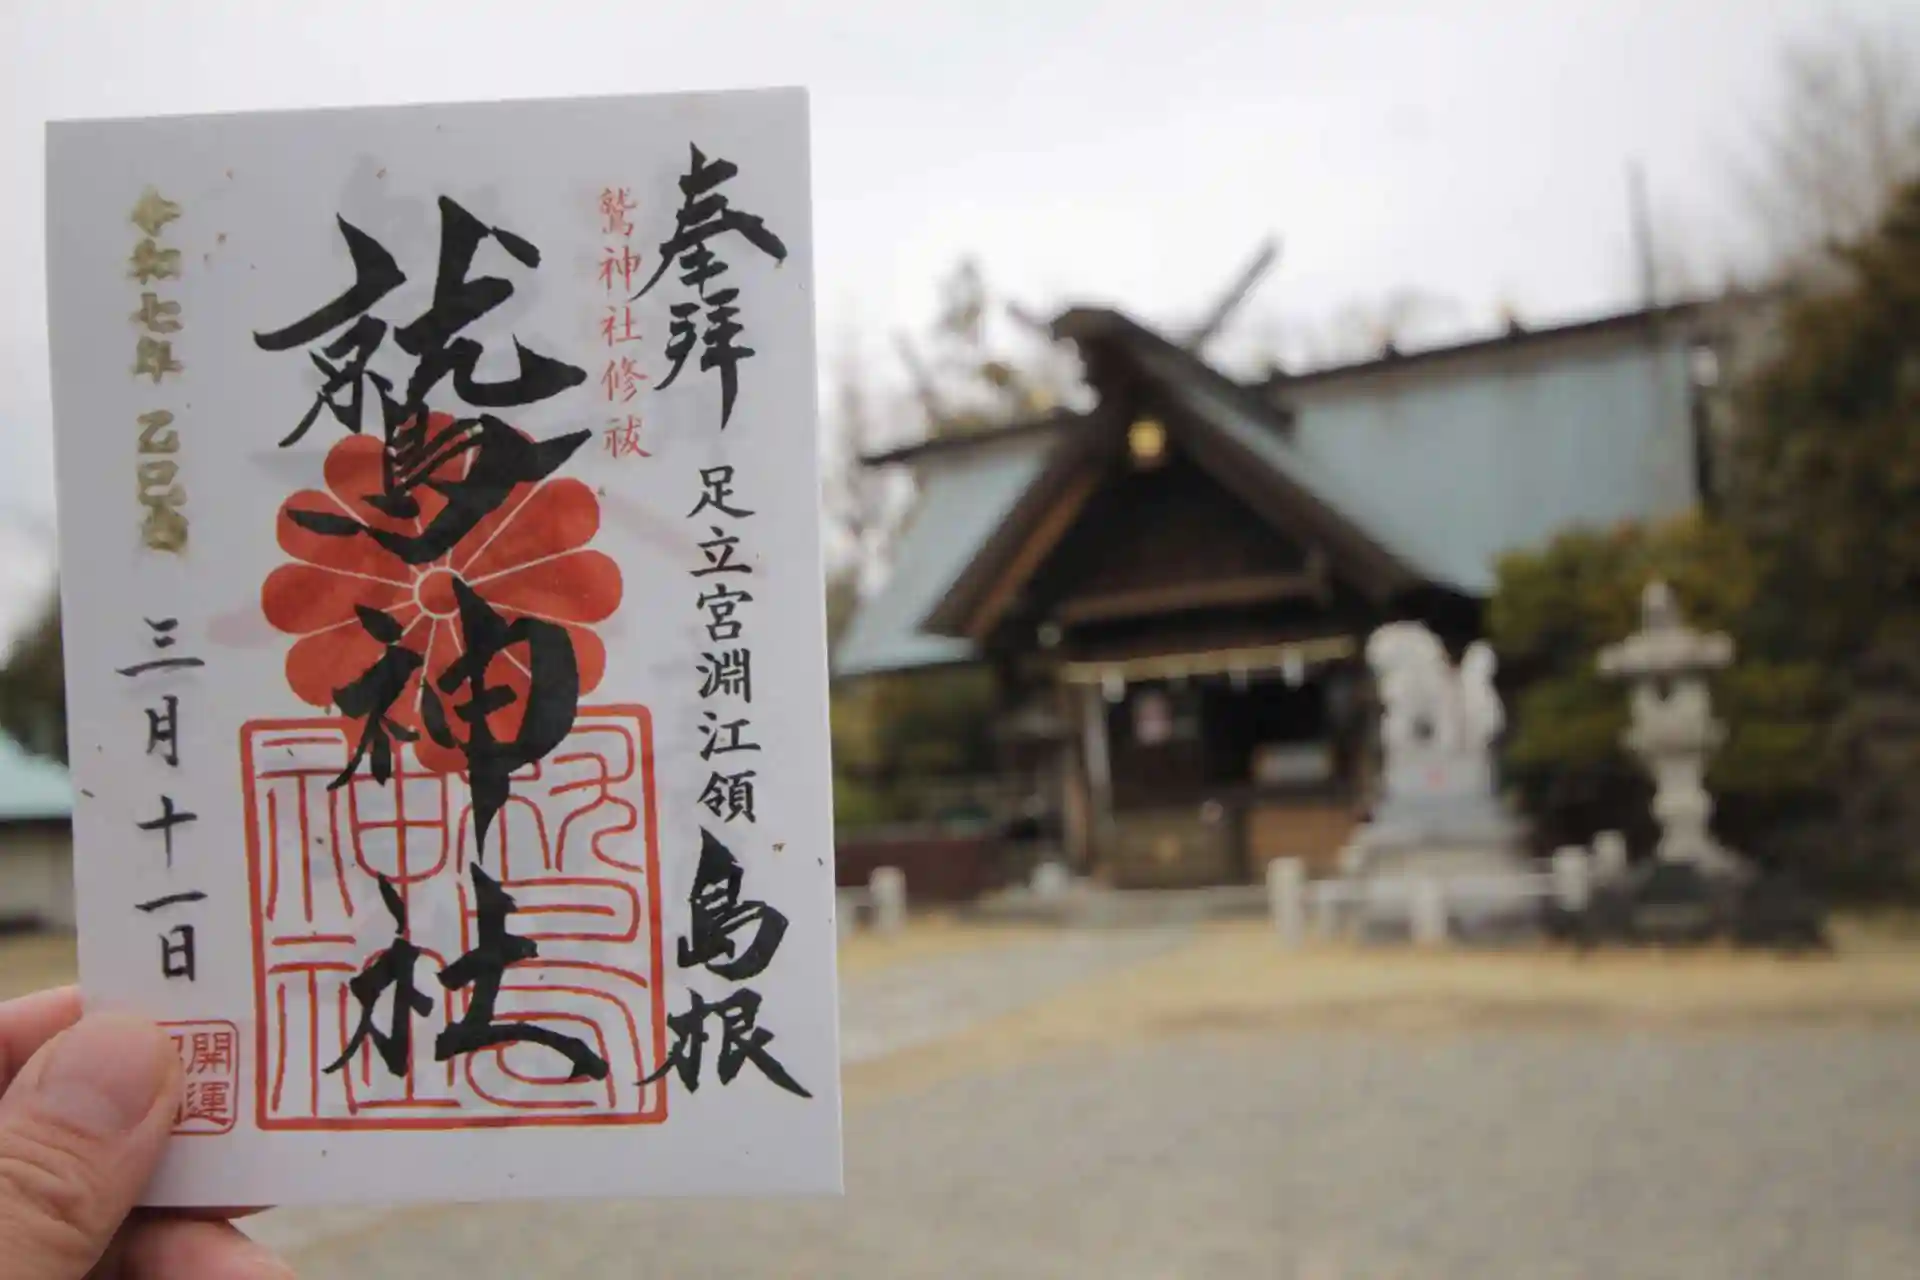 奉拝
足立宮淵江領
島根
鷲神社修祓
鷲神社
令和七年 乙巳歳
三月十一日
開運